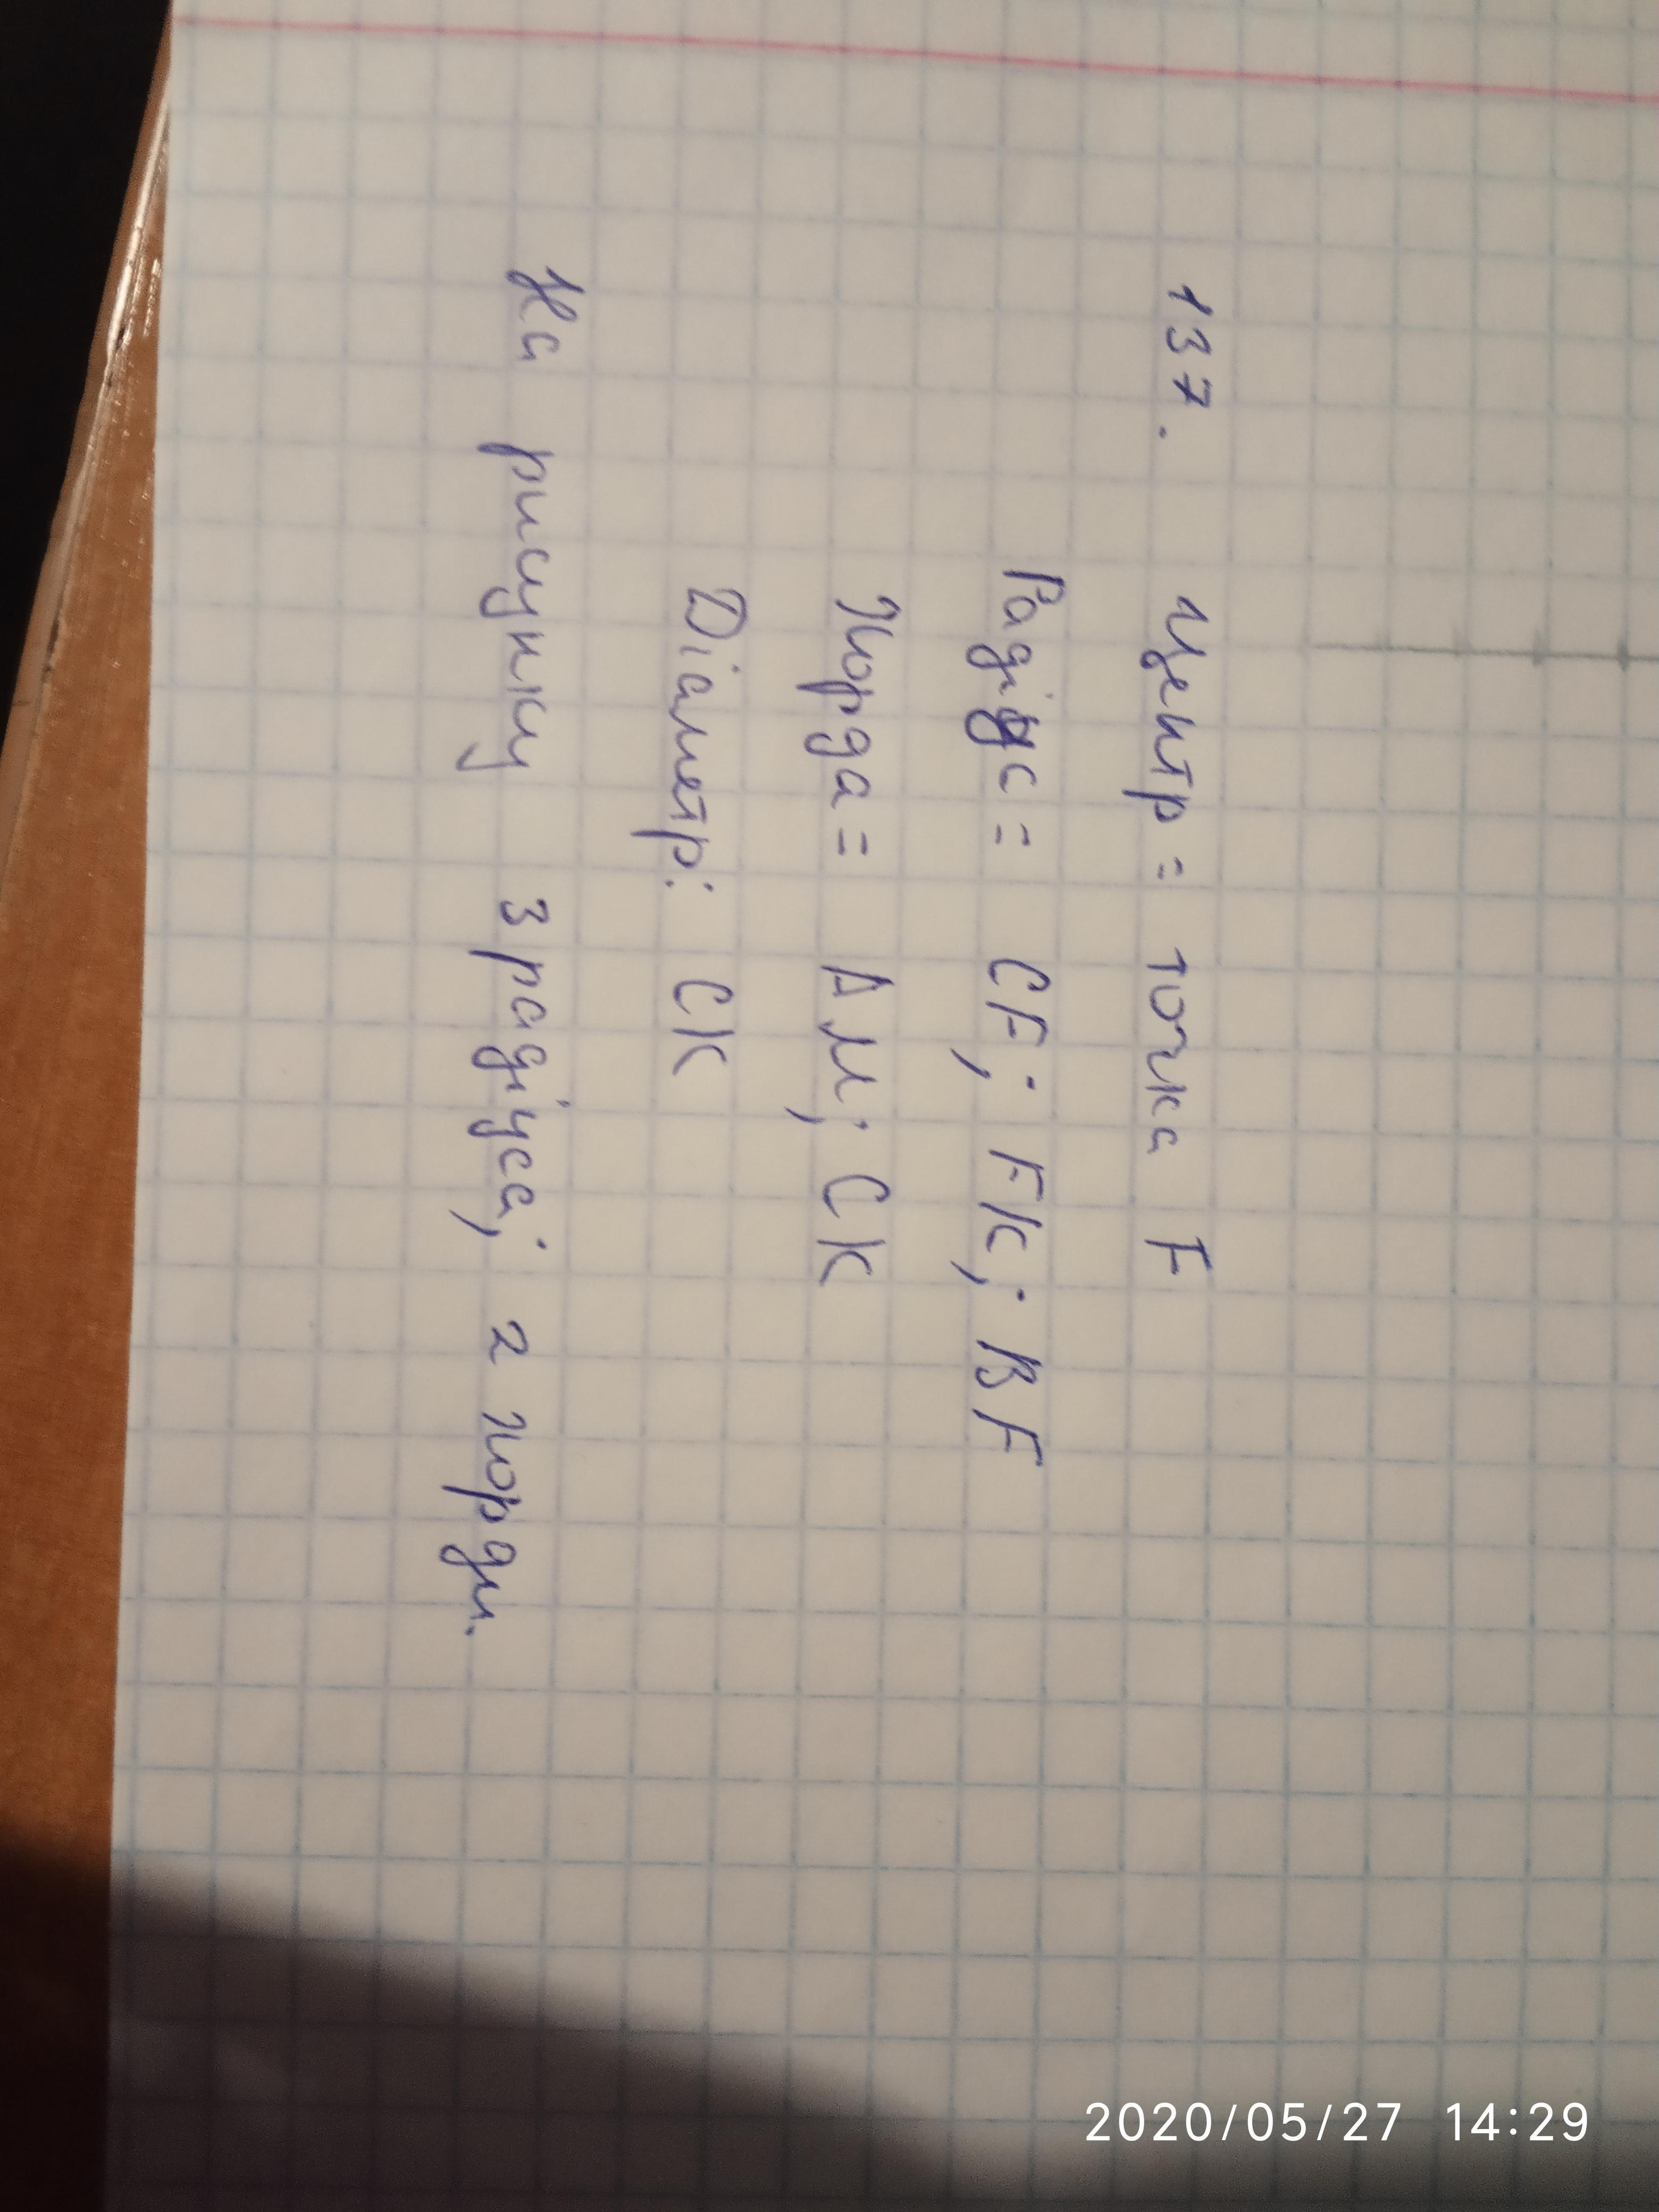 137. Центр = точка F
Радіус = CF; FK; BF
Хорда = AM; CK
Діаметр: CK
На рисунку 3 радіуса; 2 хорди.
2020/05/27 14:29